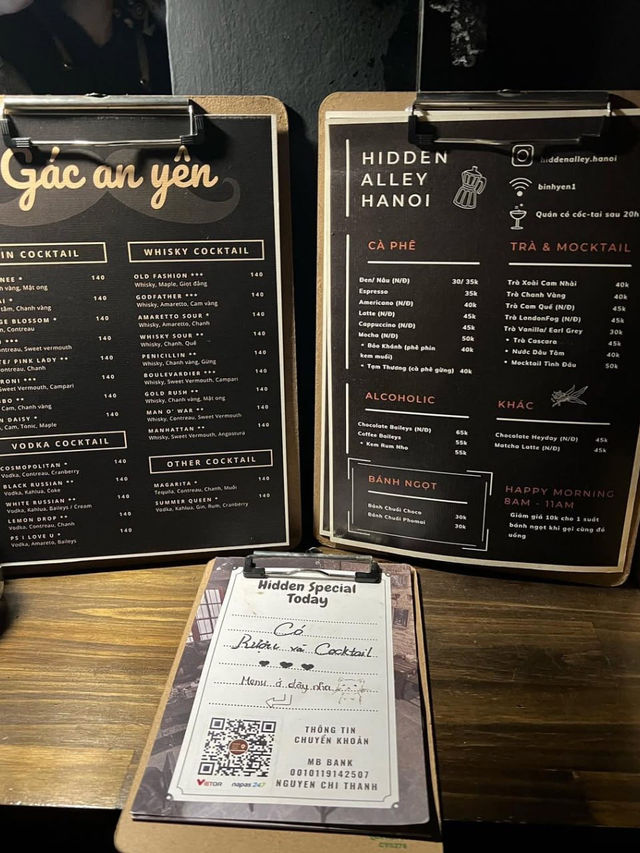 Gác an yên
IN COCKTAIL
140
140
140
140
140
140
140
140
BLOSSOM *
Contreau
PINK LADY **
Sweet vermouth, Campari
Cam, Chanh vàng
DAISY *
Cam, Tonic, Maple
VODKA COCKTAIL
COSMOPOLITAN * 140
Vodka, Contreau, Cranberry
BLACK RUSSIAN ** 140
Vodka, Kahlua, Coke
WHITE RUSSIAN ** 140
Vodka, Kahlua, Baileys / Cream
LEMON DROP ** 140
Vodka, Contreau, Chanh
PS I LOVE U * 140
Vodka, Amareto, Baileys
WHISKY COCKTAIL
OLD FASHION *** 140
Whisky, Maple, Giọt đắng
GODFATHER *** 140
Whisky, Amaretto, Cam vàng
AMARETTO SOUR * 140
Whisky, Amaretto, Chanh
WHISKY SOUR ** 140
Whisky, Chanh, Quê
PENICILLIN ** 140
Whisky, Chanh vàng, Gừng
BOULEVARDIER *** 140
Whisky, Sweet Vermouth, Campari
GOLD RUSH ** 140
Whisky, Chanh vàng, Mật ong
MAN O' WAR ** 140
Whisky, Contreau, Sweet Vermouth
MANHATTAN ** 140
Whisky, Sweet Vermouth, Angostura
OTHER COCKTAIL
MAGARITA * 140
Tequna, Contreau, Chanh, Muối
SUMMER QUEEN * 140
Vodka, Kahlua, Gin, Rum, Cranberry
HIDDEN
ALLEY
HANOI
hiddenalley.hanoi
binhyen1
Quán có cốc-tai sau 20h
CÀ PHÊ
Đen/ Nâu (N/Đ) 30/ 35k
Espresso 35k
Americano (N/Đ) 40k
Latte (N/Đ) 45k
Cappuccino (N/Đ) 45k
Mocha (N/Đ) 50k
• Bảo Khánh (phê phin 40k
kem muối)
• Tạm Thương (cà phê gừng) 40k
TRÀ & MOCKTAIL
Trà Xoài Cam Nhài 40k
Trà Chanh Vàng 40k
Trà Cam Quế (N/Đ) 45k
Trà LondonFog (N/Đ) 45k
Trà Vanilla/ Earl Grey 30k
• Trà Cascara 45k
• Nước Dâu Tằm 40k
• Mocktail Tinh Dầu 50k
ALCOHOLIC
Chocolate Baileys (N/Đ) 65k
Coffee Baileys 55k
• Kem Rum Nho 55k
KHÁC
Chocolate Heyday (N/Đ) 45k
Matcha Latte (N/Đ) 45k
BÁNH NGỌT
Bánh Chuối Choco 30k
Bánh Chuối Phomai 30k
HAPPY MORNING
8AM - 11AM
Giảm giá 10k cho 1 suất
bánh ngọt khi gọi cùng đồ
uống
Hidden Special
Today
Có
Rượu và Cocktail
Menu ở đây nha
THÔNG TIN
CHUYỂN KHOẢN
MB BANK
0010119142507
NGUYEN CHI THANH
VIETQR napas 247